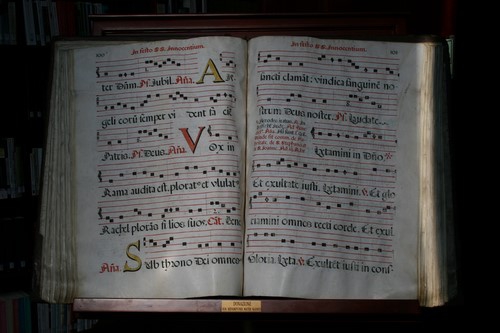 In festo S.S. Innocentium.
A
ter Dūm. Ps. Jubil. Aña.
geli eorū semper vi dent fa ciē
V
Patris. Ps. Deus. Aña. ox in
Rama audita est, plorat et ululat
Rachel plorās fi lios suos. Cāt. Bene
S
Aña. ub throno Dei omnes
In festo S.S. Innocentium.
sancti clamāt: vindica sanguinē no
strum. Deus noster. Ps. Laudate
Lætamini in Dño.
Et exultate iusti. Lætamini. V. Et glo
riamini omnes recti corde. Et exul.
Gloria. Læta. V. Exultēt iusti in cons